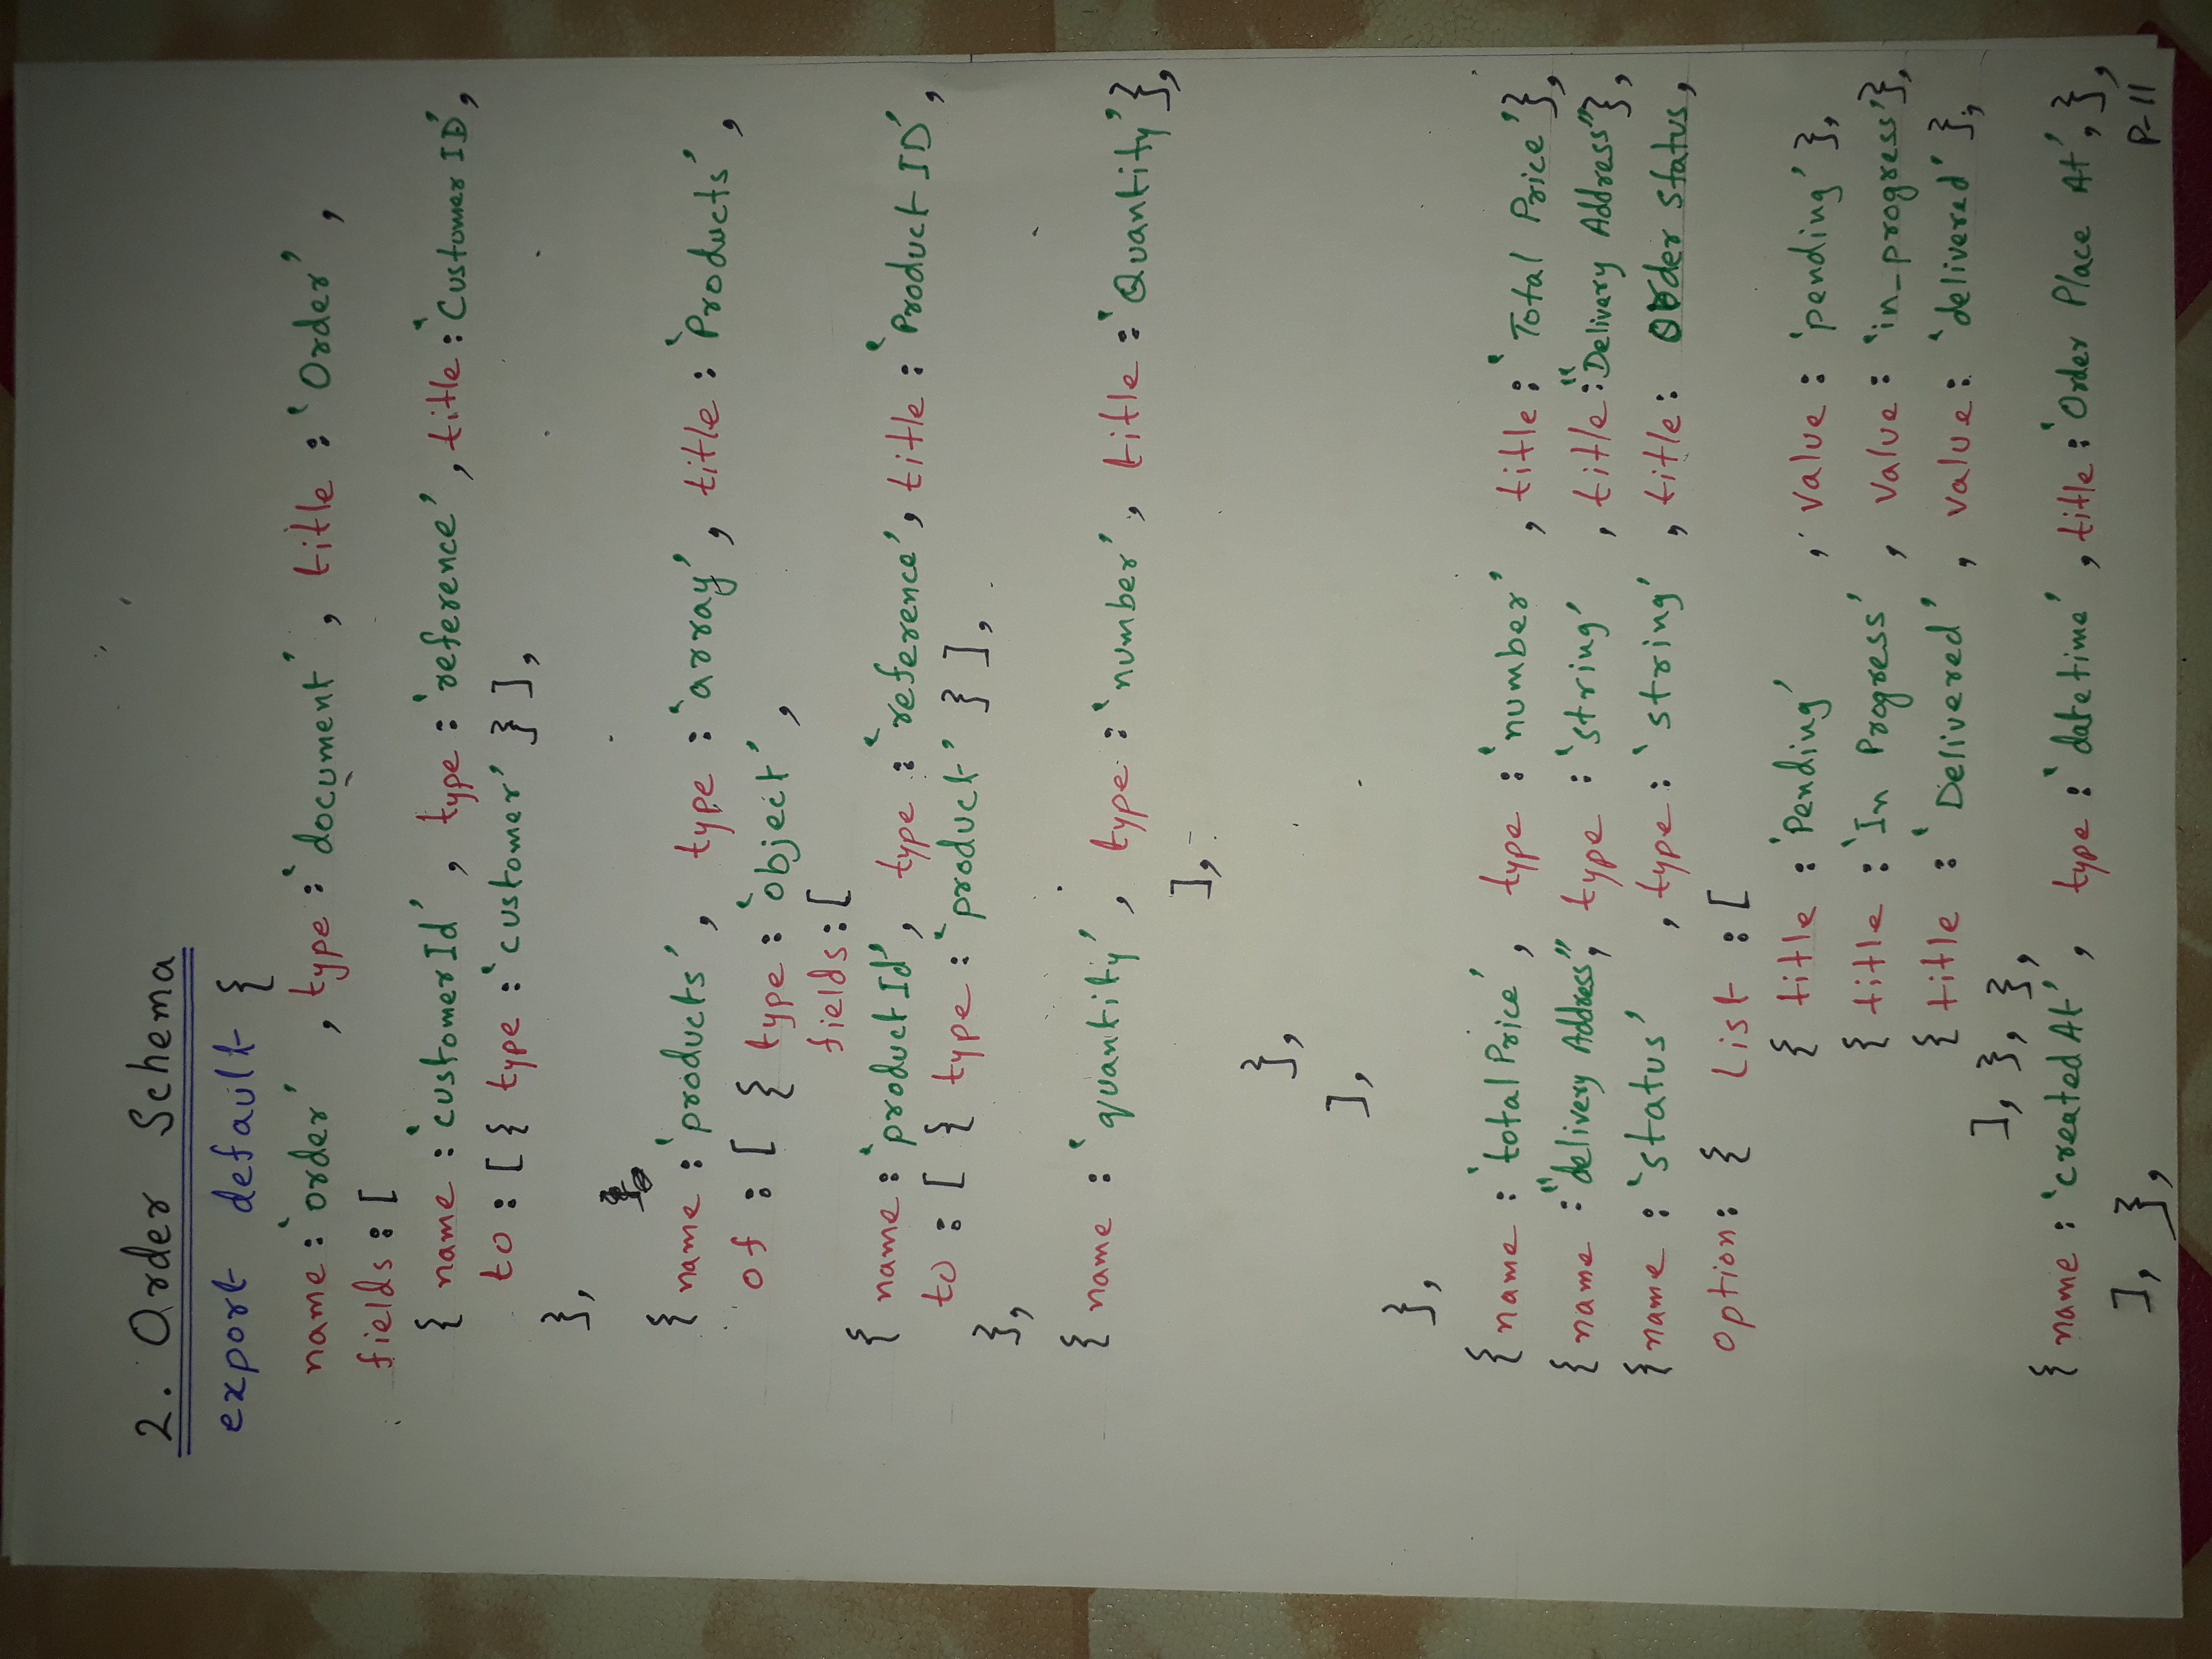 2. Order Schema
export default {
name : 'order' , type : 'document' , title : 'Order' ,
fields : [
{ name : 'customerId' , type : 'reference' , title : 'Customer ID' ,
to : [ { type : 'customer' } ] ,
} ,
{ name : 'products' , type : 'array' , title : 'Products' ,
of : [ { type : 'object' ,
fields : [
{ name : 'productId' , type : 'reference' , title : 'Product ID' ,
to : [ { type : 'product' } ] ,
} ,
{ name : 'quantity' , type : 'number' , title : 'Quantity' } ,
] ,
} ,
] ,
} ,
{ name : 'totalPrice' , type : 'number' , title : 'Total Price' } ,
{ name : "delivery Address" , type : 'string' , title : "Delivery Address" } ,
{ name : 'status' , type : 'string' , title : Order Status ,
option : { List : [
{ title : 'Pending' , value : 'pending' } ,
{ title : 'In Progress' , value : 'in_progress' } ,
{ title : 'Delivered' , value : 'delivered' } ,
] , } , } ,
{ name : 'createdAt' , type : 'datetime' , title : 'Order Place At' , } ,
] , } ,
P-11